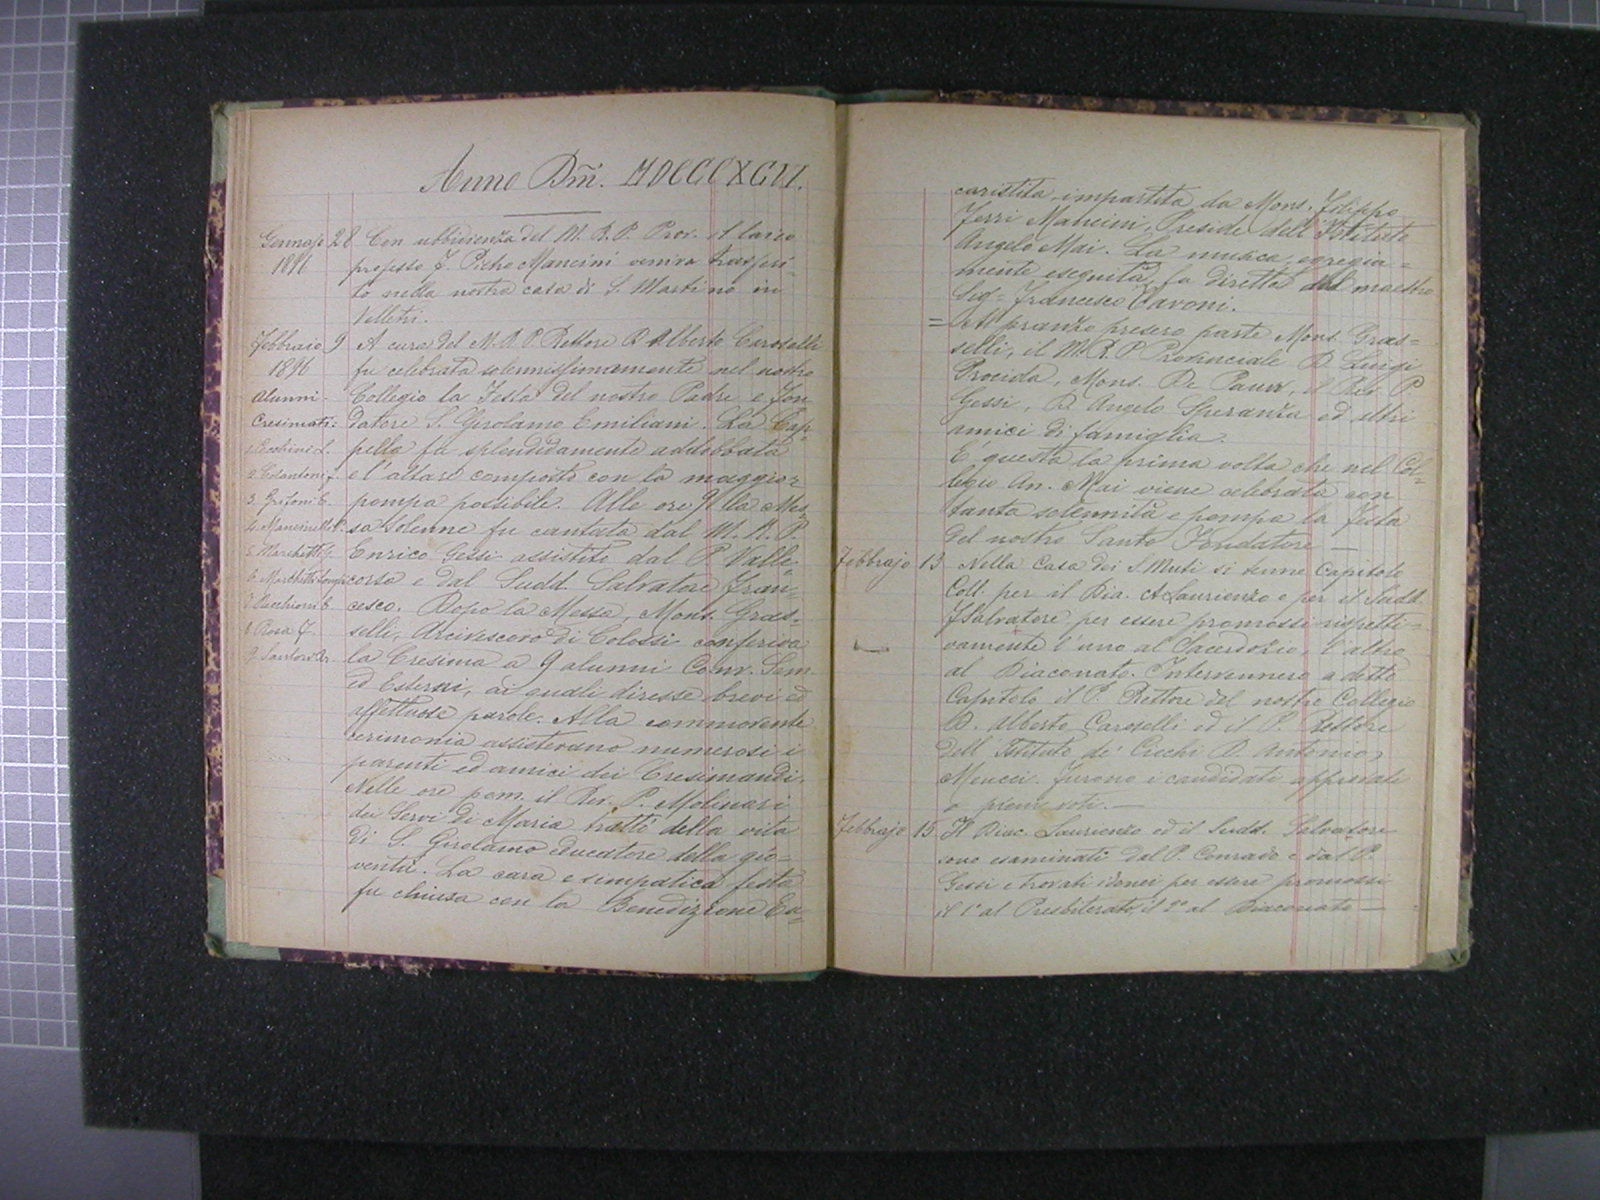 Anno Dñi. MDCCCXCVI.
Gennajo 28 Con ubbidienza del M. R. P. Prov. il laico
1896 professo F. Mancini veniva trasferi-
to nella nostra casa di S. Martino in
Velletri.
Febbraio 9 A cura del M. R. P. Rettore D. Alberto Caroselli
1896 fu celebrata solennissimamente nel nostro
Alunni Collegio la Festa del nostro Padre e Fon-
Cresimati: datore S. Girolamo Emiliani. La Cap-
1. pella fu splendidamente addobbata
2. Colantoni F. e l'altare composto con la maggior
3. Grifoni C. pompa possibile. Alle ore 9 la Mes-
4. Mancinelli sa solenne fu cantata dal M. R. P.
5. Marchetti G. Enrico Gessi assistito dal P. Valle-
6. Marchetti corsa e dal Sudd. Salvatore Fran-
7. cesco. Dopo la Messa, Mons. Gras-
8. Rosa F. selli, Arcivescovo di Colossi conferiva
9. Santori la Cresima a 9 alunni Conv. Sem.
ed Esterni, ai quali diresse brevi ed
affettuose parole. Alla commovente
cerimonia assistevano numerosi i
parenti ed amici dei Cresimandi.
Nelle ore pom. il Rev. P. Molinari
dei Servi di Maria trattò della vita
di S. Girolamo educatore della gio-
ventù. La cara e simpatica festa
fu chiusa con la Benedizione Eu-
caristica, impartita da Mons. Filippo
Ferri Mancini, Preside dell'Istituto
Angelo Mai. La musica, egregia-
mente eseguita, fu diretta dal maestro
Sig. Francesco Pavoni.
= Al pranzo presero parte Mons. Gras-
selli, il M. R. P. Provinciale D. Luigi
Procida, Mons. De il Rev. P.
Gessi, D. Angelo Speranza ed altri
amici di famiglia.
È questa la prima volta che nel Col-
legio An. Mai viene celebrata con
tanta solennità e pompa la festa
del nostro Santo Fondatore —
Febbrajo 13 Nella Casa dei S. Muti si tenne Capitolo
Coll. per il Dia. A. Laurienzo e per il Sudd.
F. Salvatore per essere promossi rispetti-
vamente l'uno al Sacerdozio, l'altro
al Diaconato. Intervennero a detto
Capitolo il P. Rettore del nostro Collegio
D. Alberto Caroselli ed il P. Rettore
dell'Istituto de' Ciechi D. Antonio
Meucci. Furono i candidati approvati
a pieni voti. —
Febbrajo 15. Il Diac. Laurienzo ed il Sudd. Salvatore
sono esaminati dal P. Conrado e dal P.
Gessi e trovati idonei per essere promossi
il 1º al Presbiterato, il 2º al Diaconato —